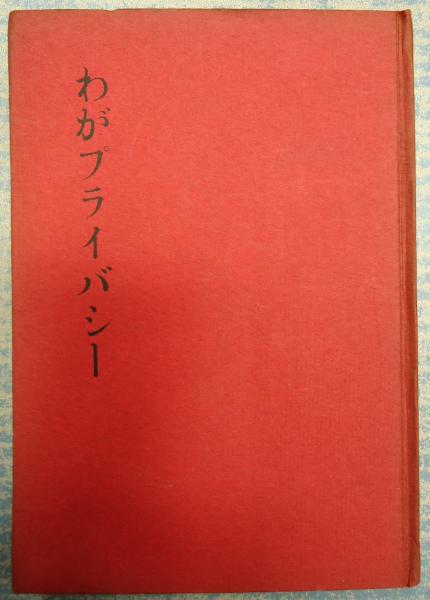 わがプライバシー